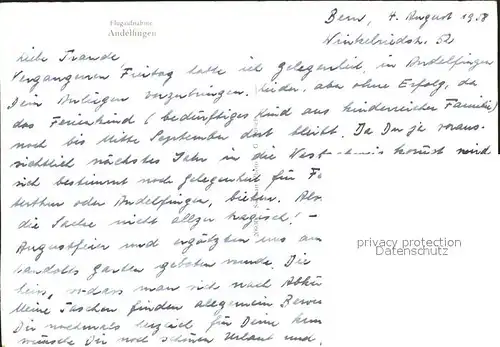 Flugaufnahme
Andelfingen
Bern, 4. August 1958
Winkelriedstr. 52
Liebe Traude
Vergangenen Freitag hatte ich Gelegenheit, in Andelfingen
Dein Anliegen vorzubringen. Leider, aber ohne Erfolg, da
das Ferienkind (bedürftiges Kind aus kinderreicher Familie)
noch bis Mitte September dort bleibt. Da Du ja voraus-
sichtlich nächstes Jahr in die kommst, wird
sich bestimmt noch Gelegenheit für
oder Andelfingen, bieten. Also
die Sache nicht allzu tragisch! -
Augustfeier und ergötzten uns am
Garten geboten wurde. Die
dass man sich nach
kleine Taschen finden allgemein
Dir nochmals herzlich für Deine
wünsche Dir noch schönen Urlaub und
privacy protection
Datenschutz